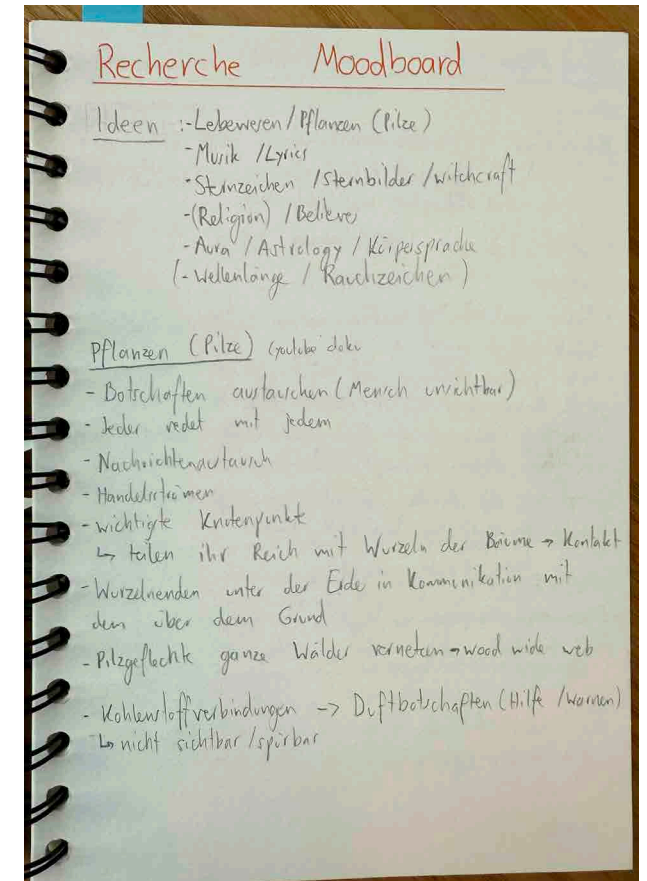 Recherche Moodboard
Ideen :-Lebewesen / Pflanzen (Pilze)
- Musik / Lyrics
- Sternzeichen / Sternbilder / witchcraft
- (Religion) / Believe
- Aura / Astrology / Körpersprache
(- Wellenlänge / Rauchzeichen )
Pflanzen (Pilze) (youtube doku
- Botschaften austauschen ( Mensch unsichtbar )
- Jeder redet mit jedem
- Nachrichtenaustausch
- Handelsströmen
- wichtigte Knotenpunkte
↳ teilen ihr Reich mit Wurzeln der Bäume → Kontakt
- Wurzelnenden unter der Erde in Kommunikation mit
den über dem Grund
- Pilzgeflechte ganze Wälder vernetzen → wood wide web
- Kohlenstoffverbindungen -> Duftbotschaften ( Hilfe / Warnen )
↳ nicht sichtbar / spürbar